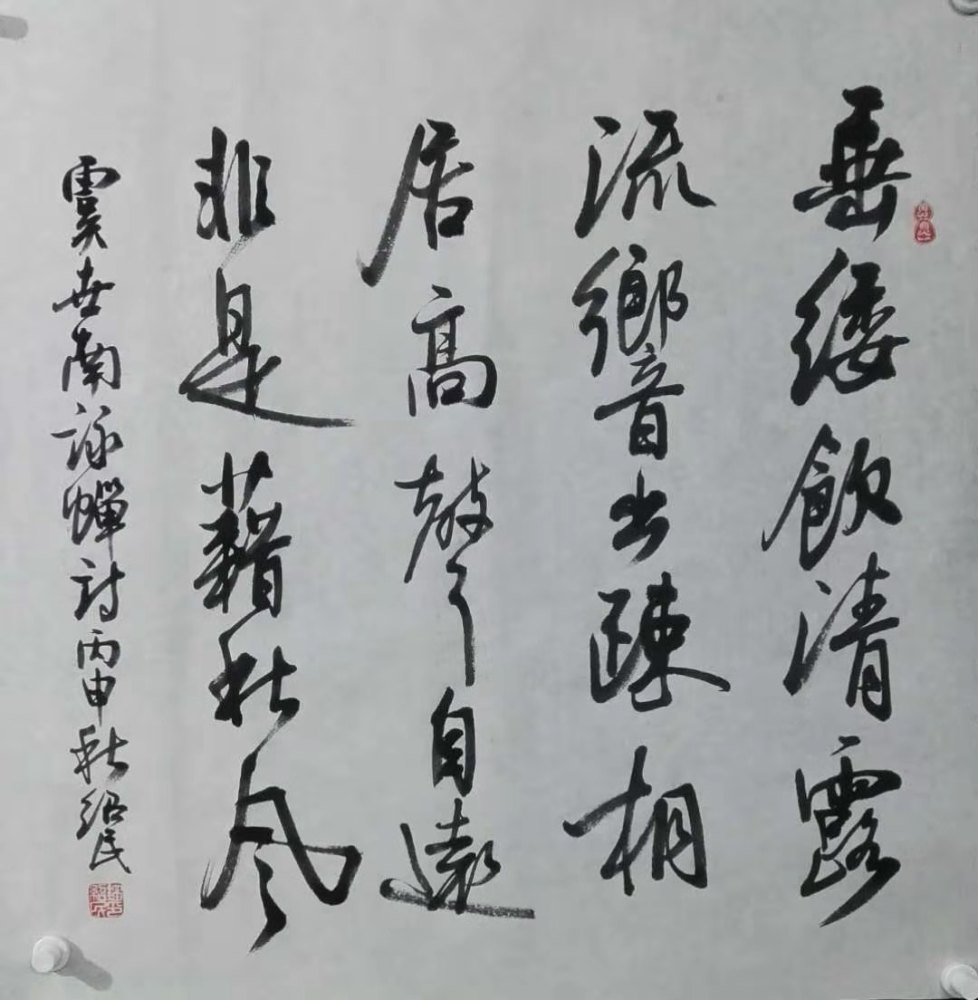 垂緌飲清露
流響出踈桐
居高聲自遠
非是藉秋風
虞世南詠蟬詩丙申秋紹民